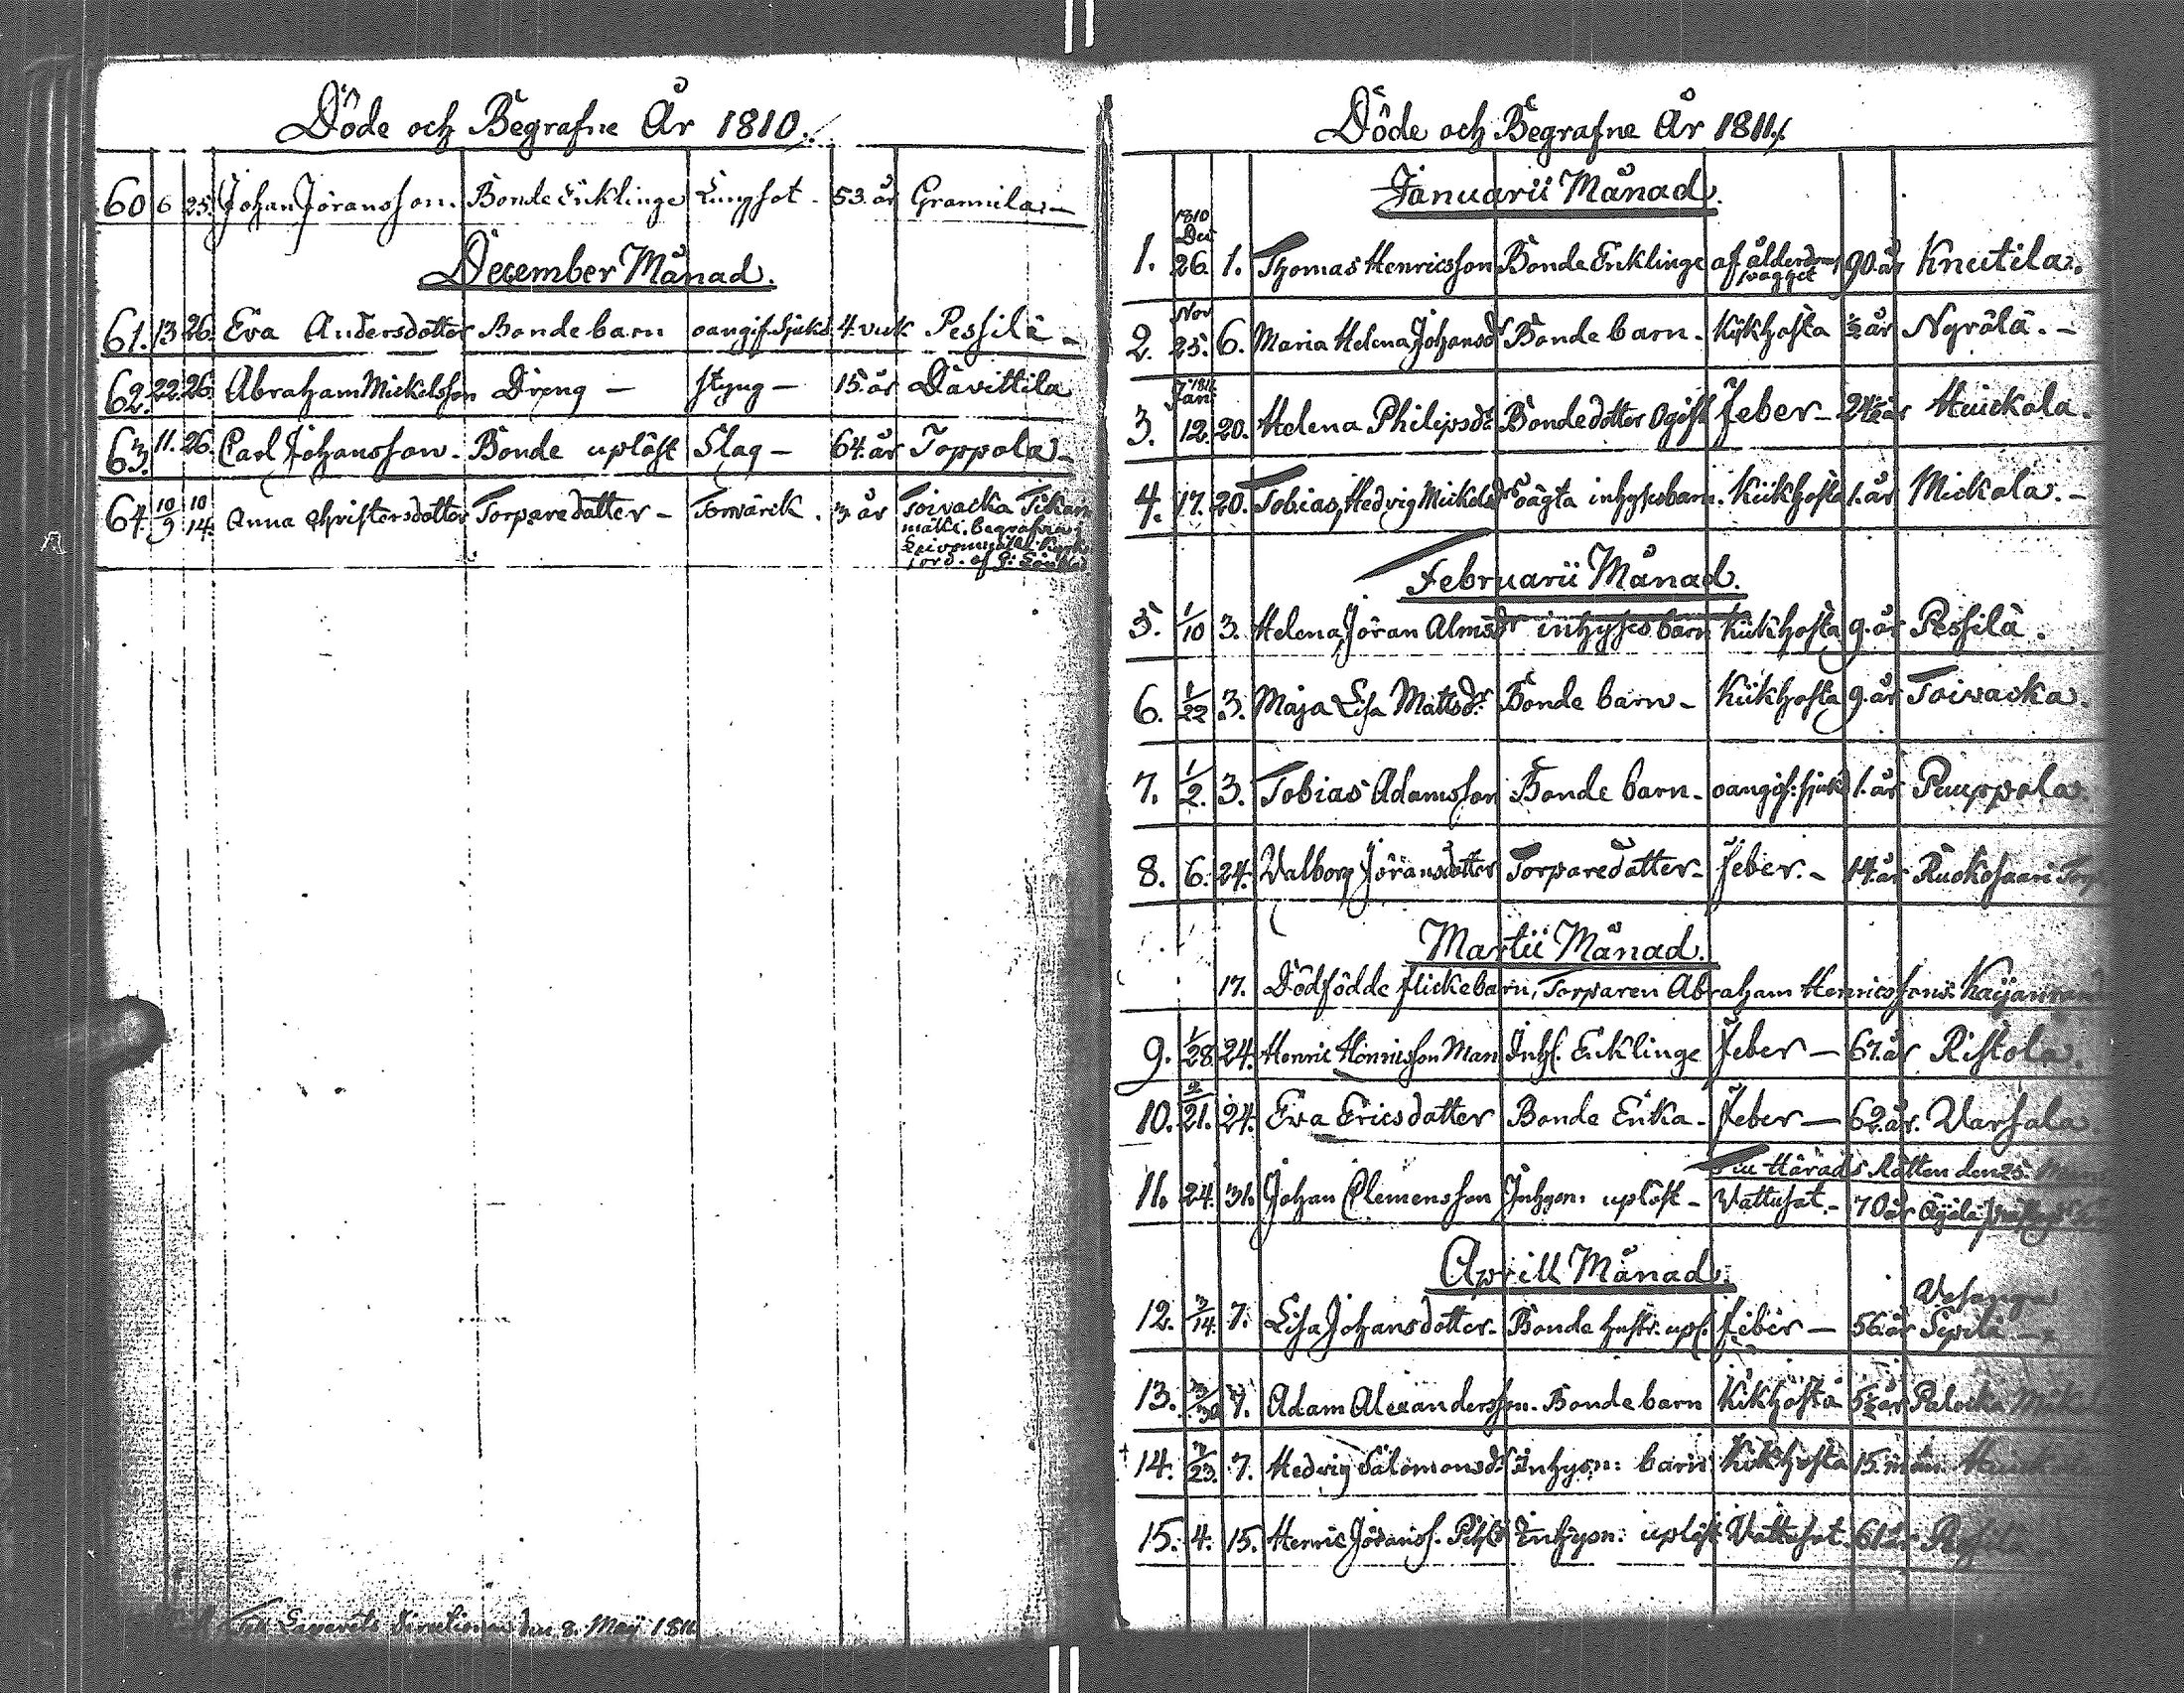 Döde och Begrafne År 1810.
60 6 25. Johan Jöransson. Bonde Enklinge Lungsot - 53. år Grannila. -
December Månad.
61. 13 26. Eva Andersdotter Bonde barn oangif. sjukd. 4. vick Pessilä -
62. 22. 26. Abraham Mickelsson Dreng - styng - 15. år Dävittila
63. 11. 26. Carl Johansson. Bonde uplöst Slag - 64. år Toppola -
64. 10/9 10/14. Anna Christersdotter Torparedotter - Torrvärck. 3 år Toivacka
mäki. begrafven
jord. af
den 8. Maij 1811
Döde och Begrafne År 1811.
Januarii Månad.
1. 1810 Dec 26. 1. Thomas Henricsson Bonde Enklinge af ålderdoms svaghet 90. år Knutila.
2. Nov 25. 6. Maria Helena Johansdr Bonde barn. Kikhosta ½ år Nyrölä. -
3. 1811. Jan. 12. 20. Helena Philipsdr Bondedotter Ogift Feber - Huickola.
4. 17. 20. Tobias, Hedvig Mickelsdr oägta inhysesbarn. Kikhosta 1. år Mickola. -
Februarii Månad.
5. 1/10 3. Helena, Jöran Almsdr inhyses barn Kikhosta 9. år Pessilä.
6. 1/22 3. Maja Lisa Mattsdr. Bonde barn - Kikhosta 9. år Toivacka.
7. 1/2. 3. Tobias Adamsson Bonde barn - oangif: sjukd 1. år Puuppola.
8. 6. 24. Valborg Jöransdotter Torparedotter - feber. - 14. år Ruokosaari Torp
Martii Månad.
17. Dödfödde flickebarn, Torparen Abraham Henricssons
9. 1/28 24. Henric Henricsson Man Inhs. Encklinge Feber - 67. år Ristola.
10. 2/21. 24. Eva Ericsdotter Bonde Enka - Feber - 62. år. Varsala
Till Härads Rätten den 25.
11. 24. 31. Johan Clemensson Inhysn: uplöst - Vattusot. - 70 år
Aprill Månad.
12. 3/14. 7. Lisa Johansdotter. Bonde hustr. upl. feber - 56 år Vesanga Sipilä -
13. 3/30 7. Adam Alexandersson. Bonde barn Kikhosta 5½ år Palocka
14. 3/23. 7. Hedvig Salomonsdr Inhysn: barn Kikhosta 15. mån.
15. 4. 15. Henric Jöranss. Inhysn: uplöst Vattusot. 61. år